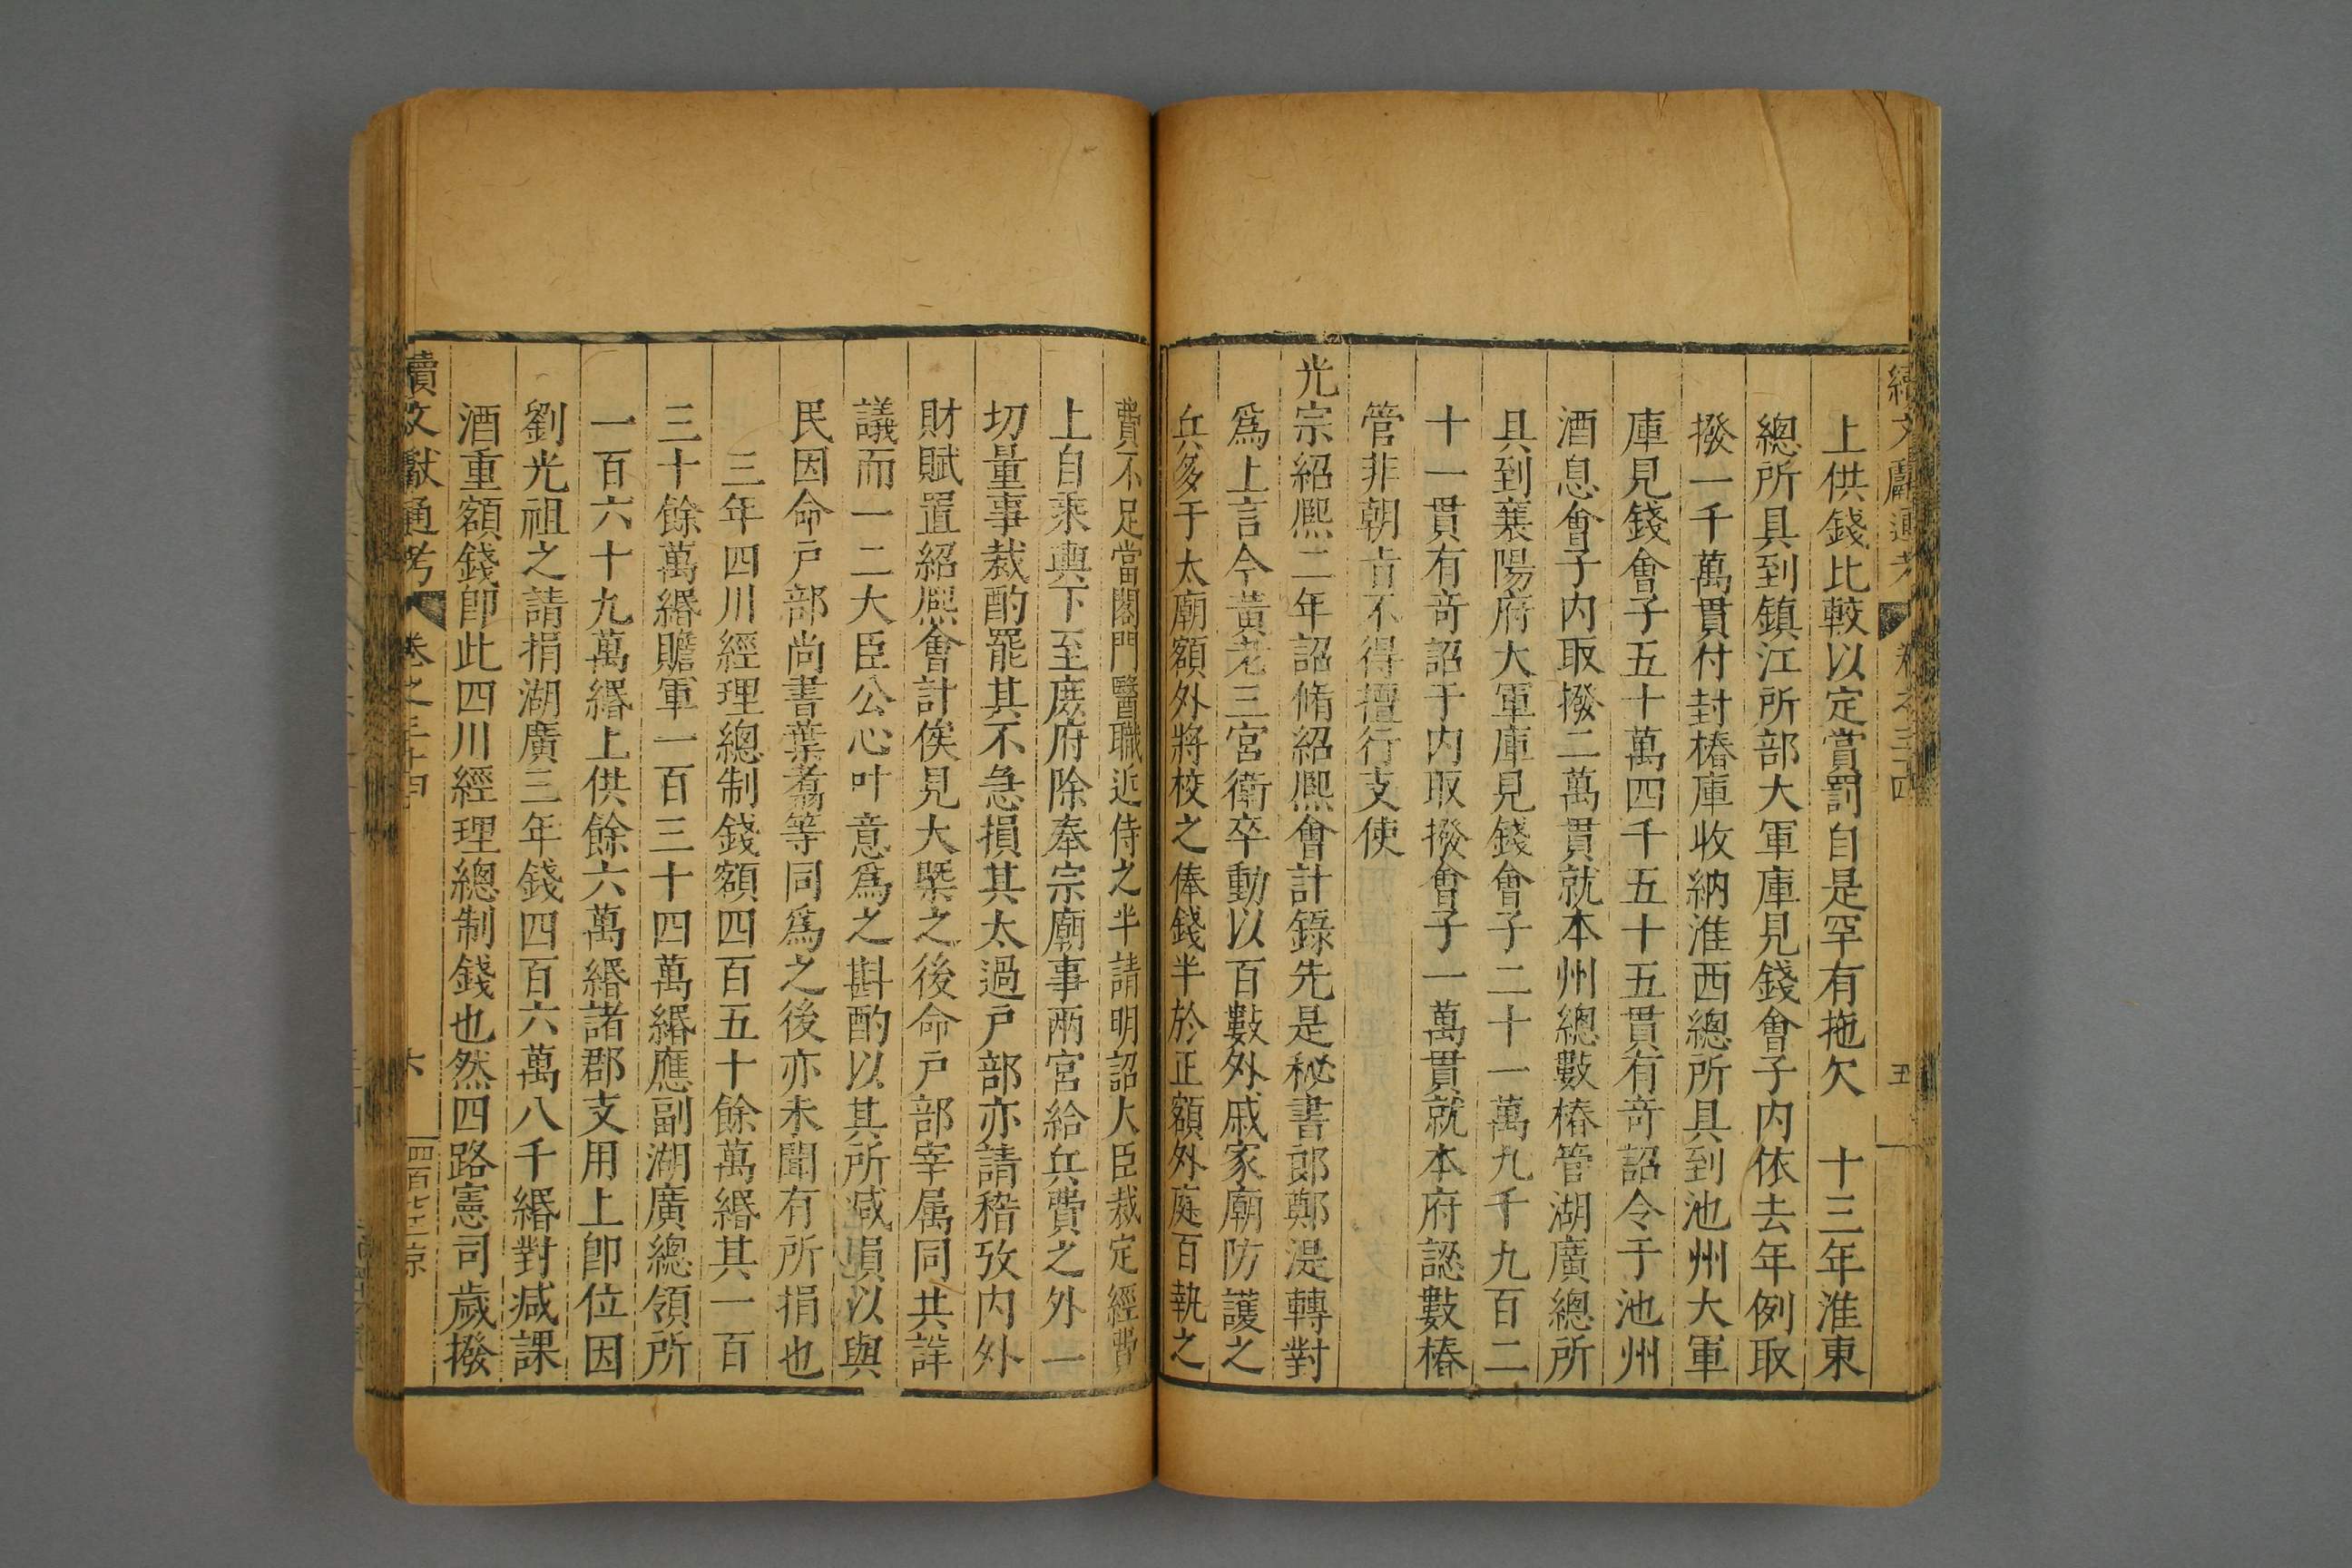 續文獻通考 卷之三十四 五
上供錢比較以定賞罰自是罕有拖欠 十三年淮東
總所具到鎮江所部大軍庫見錢會子内依去年例取
撥一千萬貫付封樁庫收納淮西總所具到池州大軍
庫見錢會子五十萬四千五十五貫有奇詔令于池州
酒息會子内取撥二萬貫就本州總數樁管湖廣總所
具到襄陽府大軍庫見錢會子二十一萬九千九百二
十一貫有奇詔于内取撥會子一萬貫就本府認數樁
管非朝㫖不得擅行支使
光宗紹熈二年詔脩紹熈會計錄先是秘書郎鄭湜轉對
爲上言今黃老三宮衛卒動以百數外戚家廟防護之
兵多于太廟額外將校之俸錢半於正額外庭百執之
費不足當閤門醫職近侍之半請明詔大臣裁定經費
上自乘輿下至庶府除奉宗廟事兩宮給兵費之外一
切量事裁酌罷其不急損其太過戸部亦請稽攷内外
財賦置紹熈會計俟見大槩之後命戸部宰属同共詳
議而一二大臣公心叶意爲之斟酌以其所减損以與
民因命戸部尚書葉翥等同爲之後亦未聞有所捐也
三年四川經理總制錢額四百五十餘萬緡其一百
三十餘萬緡贍軍一百三十四萬緡應副湖廣總領所
一百六十九萬緡上供餘六萬緡諸郡支用上卽位因
劉光祖之請捐湖廣三年錢四百六萬八千緡對减課
酒重額錢卽此四川經理總制錢也然四路憲司歲撥
續文獻通考 卷之三十四 六